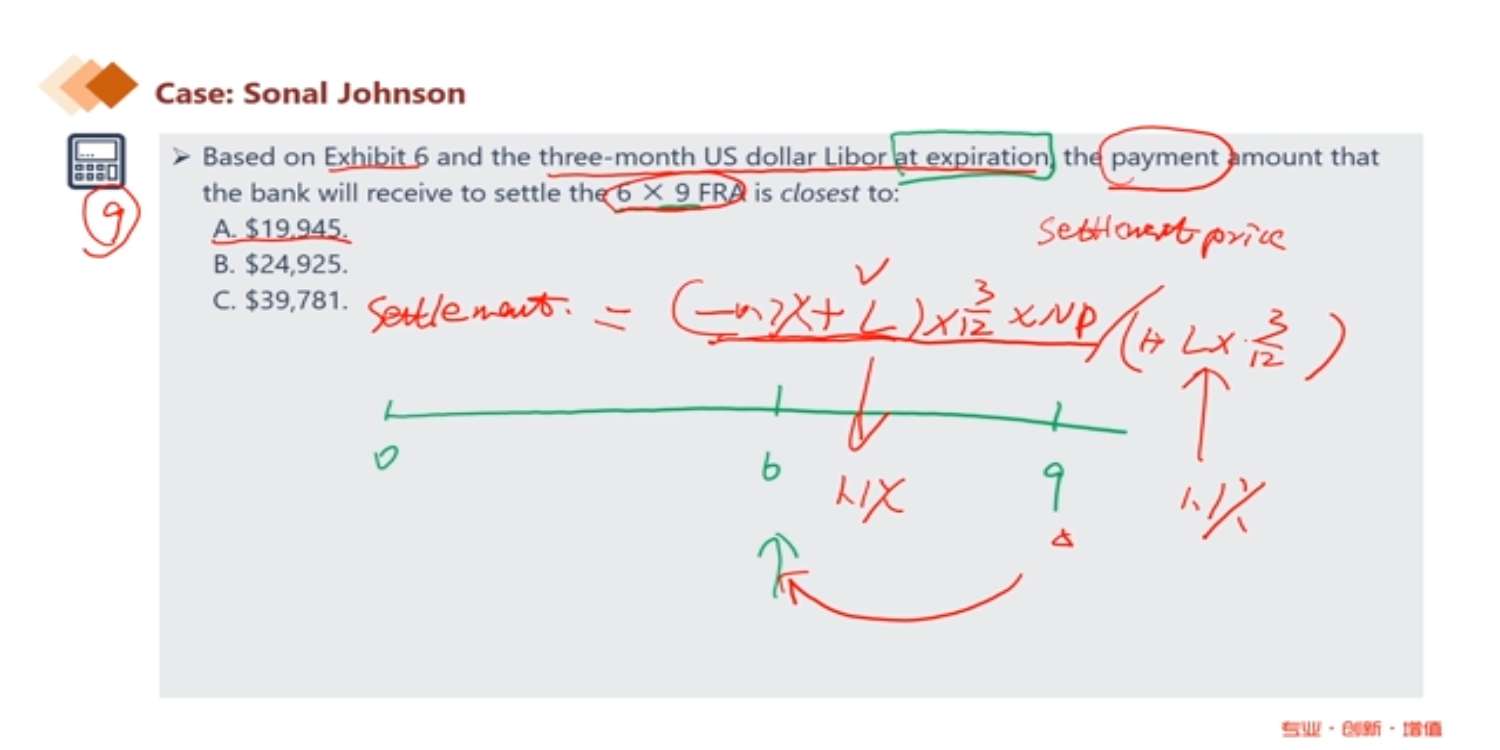 Case: Sonal Johnson
➤ Based on Exhibit 6 and the three-month US dollar Libor at expiration, the payment amount that
the bank will receive to settle the 6 × 9 FRA is closest to:
9
A. $19,945.
B. $24,925.
C. $39,781.
settlement price
settlement. = ( + L) × 3/12 × NP / (1+ L × 3/12)
0 6 9
1.1% 1.1%
专业・创新・增值